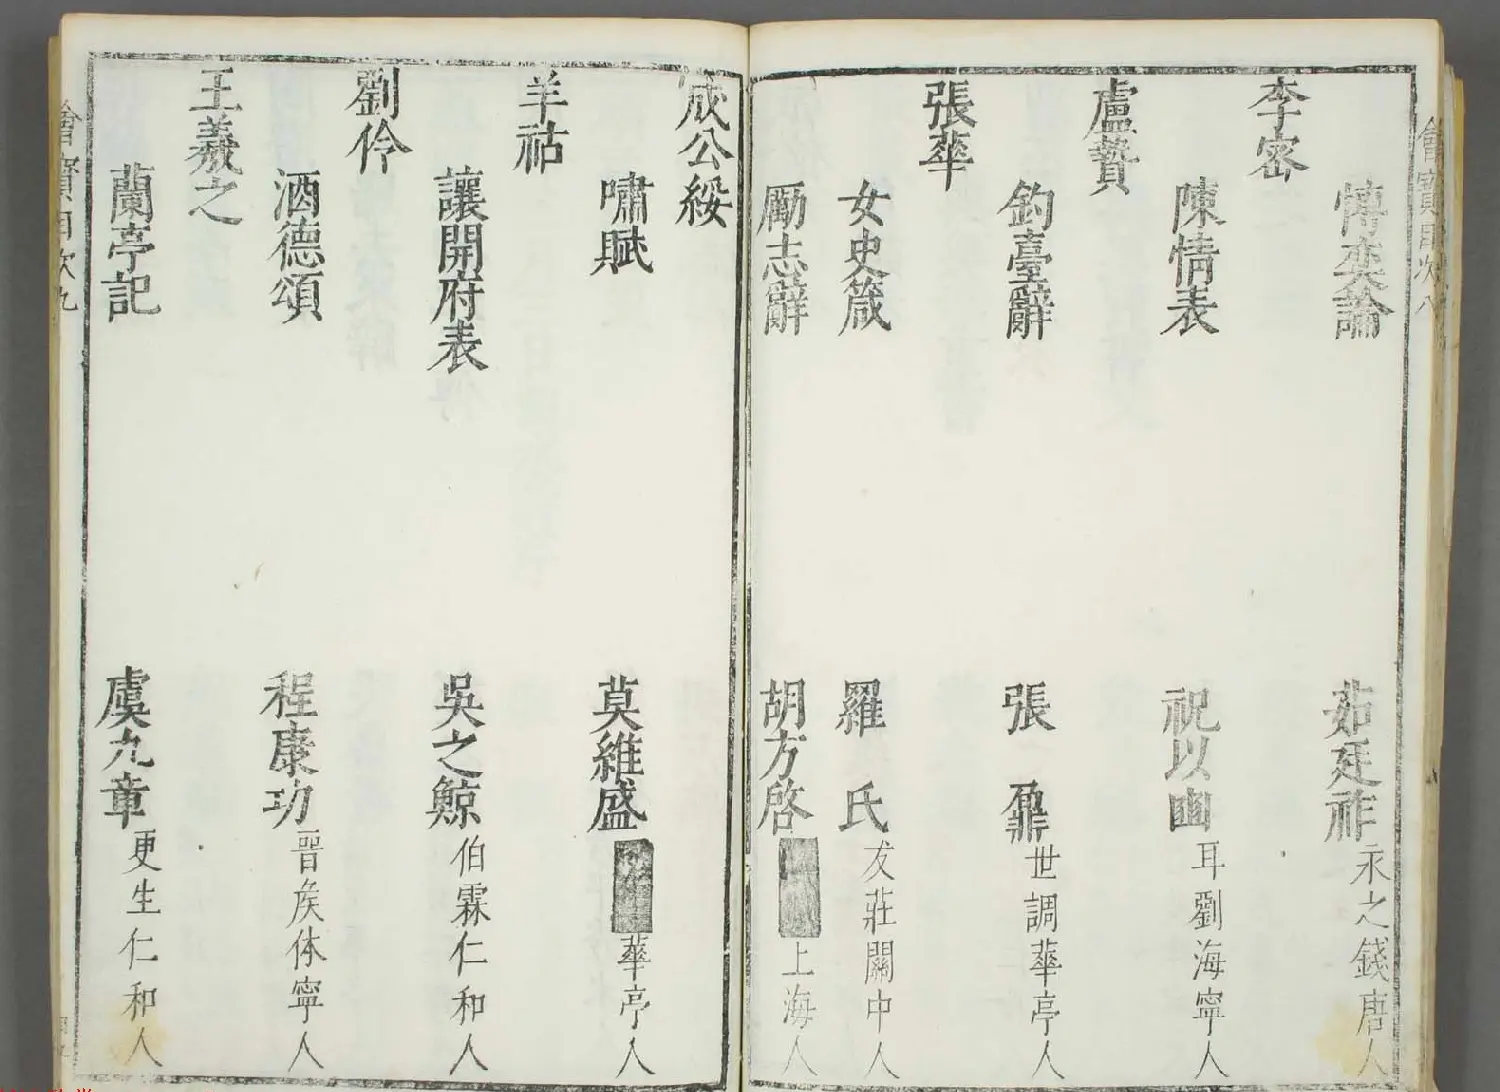 博奕論 茹廷祚 永之錢唐人
李密
陳情表 祝以豳 耳劉海寧人
盧贄
釣臺辭 張鼐 世調華亭人
張華
女史箴 羅氏 友莊關中人
勵志辭 胡方啓 上海人
會寶目次八
成公綏
嘯賦 莫維盛 華亭人
羊祜
讓開府表 吳之鯨 伯霖仁和人
劉伶
酒德頌 程康功 晋矦休寧人
王羲之
蘭亭記 虞九章 更生仁和人
會寶目次九